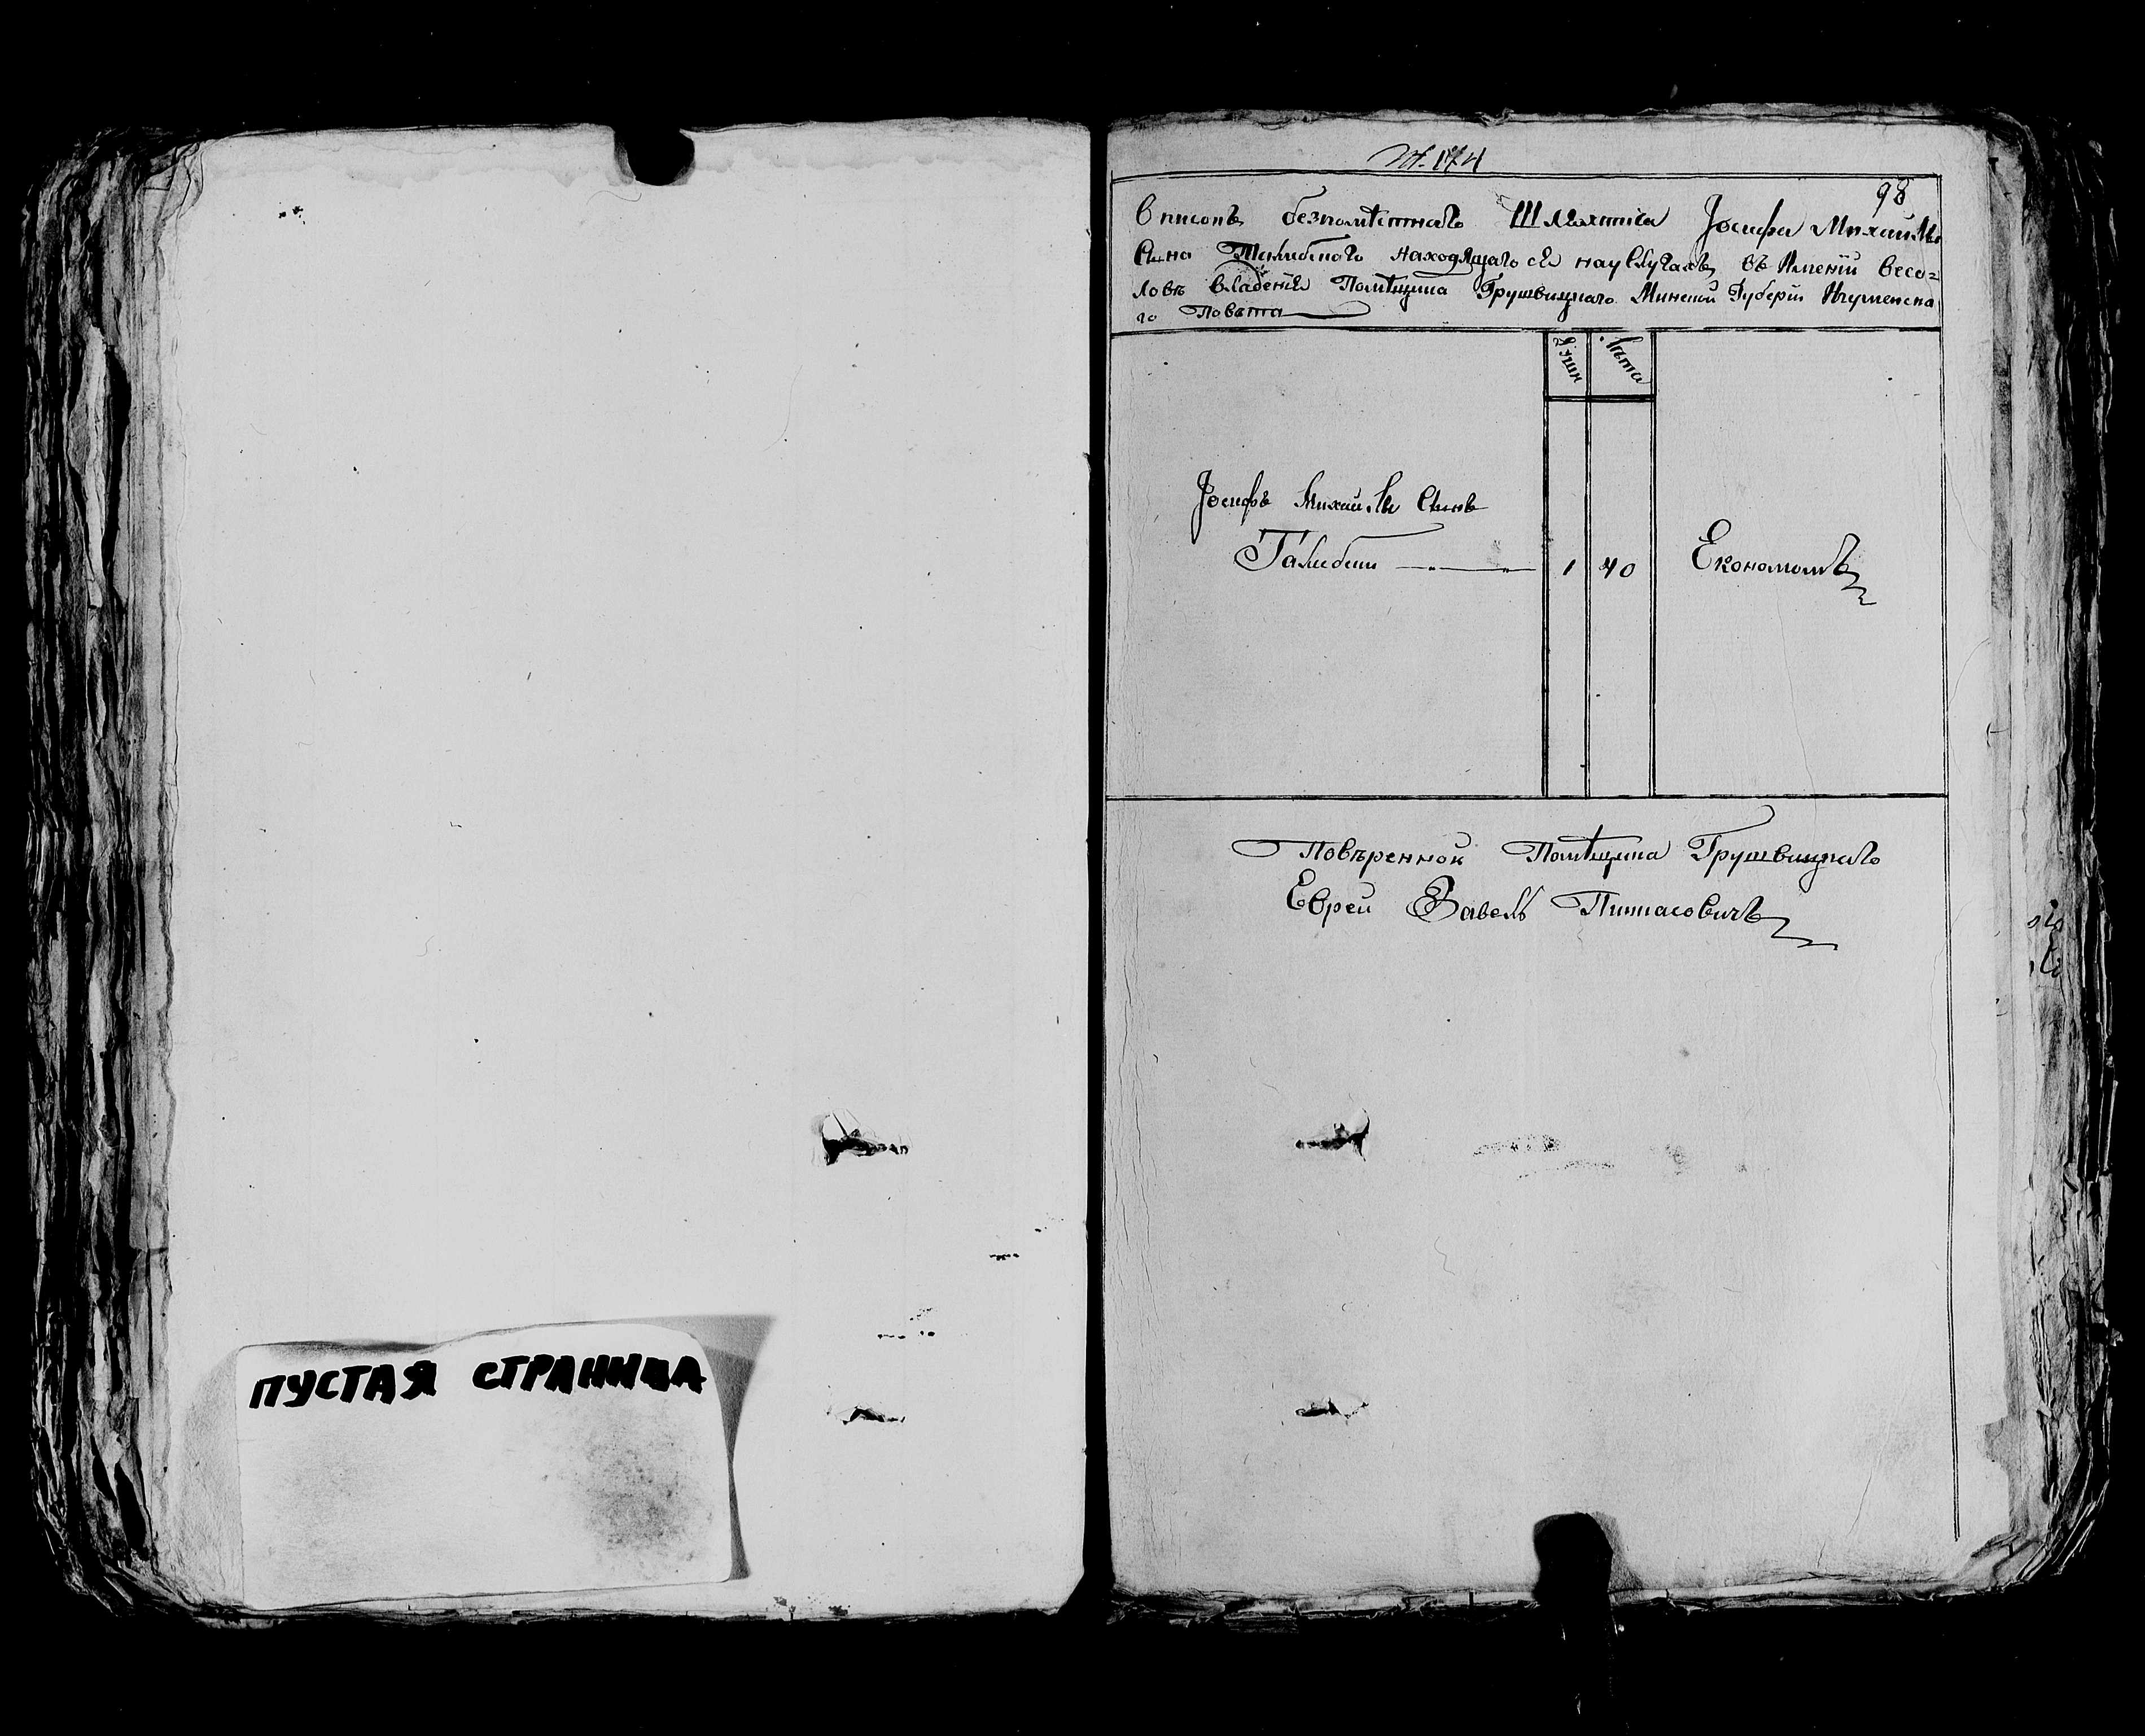 ПУСТАЯ СТРАНИЦА
№. 174
98
Списокъ безпомѣстнаго Шляхтича Іосифа Михайла
Сина находящаго ся науслугахъ въ Имении Весо=
ловѣ владения Помѣщика Грушвицкаго Минской Губерніи Игуменска
го Повѣта
Души
Лѣта
Іосифъ Михайла Синъ
1 40 Економомъ
Повѣренной Помѣщика Грушвицкаго
Еврей Завель Пинхасовичъ